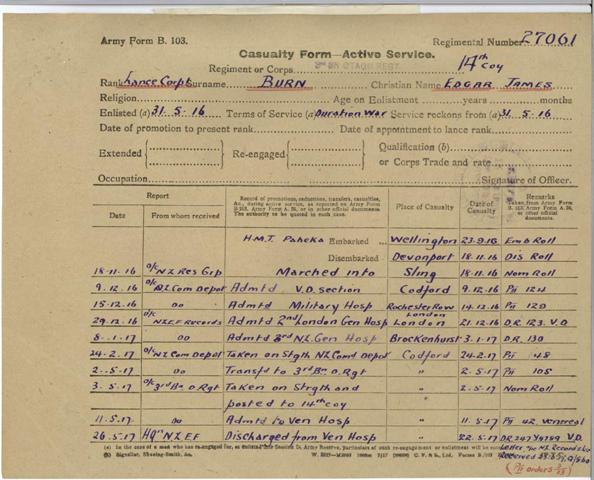 Army Form B. 103. Regimental Number 27061
Casualty Form—Active Service.
Regiment or Corps OTAGO REGT 14th Coy
Rank Lance Corpl Surname BURN Christian Name EDGAR JAMES
Religion Age on Enlistment years months
Enlisted (a) 31.5.16 Terms of Service (a) Duration War Service reckons from (a) 31.5.16
Date of promotion to present rank Date of appointment to lance rank
Extended Re-engaged Qualification (b)
or Corps Trade and rate
Occupation Signature of Officer.
Report Record of promotions, reductions, transfers, casualties, &c., during active service, as reported on Army Form B.213, Army Form A. 36, or in other official documents. The authority to be quoted in each case. Place of Casualty Date of Casualty Remarks Taken from Army Form B. 213, Army Form A. 36, or other official documents.
Date From whom received
H.M.T. Pakeka Embarked Wellington 23.9.16 Emb Roll
Disembarked Devonport 18.11.16 Dis Roll
18.11.16 o/c N.Z. Res Grp Marched into Sling 18.11.16 Nom Roll
9.12.16 o/c N.Z. Com Depot Admtd V.D. section Codford 9.12.16 PII 124
15.12.16 do Admtd Military Hosp Rochester Row London 14.12.16 PII 128
29.12.16 o/c N.Z.E.F Records Admtd 2nd London Gen Hosp London 21.12.16 D.R. 123. V.D
8.1.17 do Admtd N.Z. Gen Hosp Brockenhurst 3.1.17 DR. 130
24.2.17 o/c N.Z. Com Depot Taken on Stgth N.Z. Comd Depot Codford 24.2.17 PII 48
2.5.17 do Transfd to 3rd Bn O. Rgt " 2.5.17 PII 105
3.5.17 o/c 3rd Bn O. Rgt Taken on Strgth and " 2.5.17 Nom Roll
posted to 14th Coy
11.5.17 do Admtd to Ven Hosp " 11.5.17 PII 42 venereal
26.5.17 Hqrs N.Z.E.F Discharged from Ven Hosp " 22.5.17 V.D.
(a) In the case of a man who has re-engaged for, or enlisted into Section D. Army Reserve, particulars of such re-engagement or enlistment will be entered.
(b) Signaller, Shoeing-Smith, &c.
Received
(PII orders